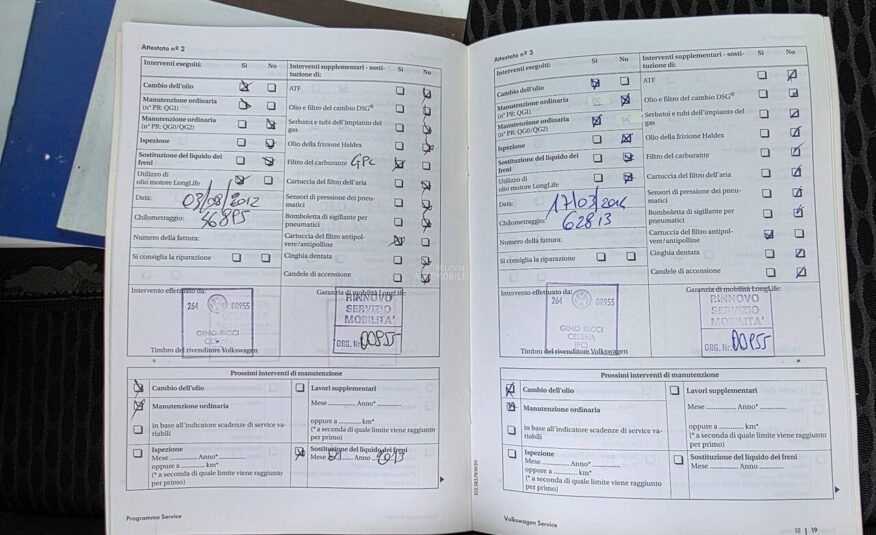 Attestato nº 2
Interventi eseguiti: Sì No
Cambio dell'olio
Manutenzione ordinaria
(nº PR: QG1)
Manutenzione ordinaria
(nº PR: QG0/QG2)
Ispezione
Sostituzione del liquido dei
freni
Utilizzo di
olio motore LongLife
Data: 03/08/2012
Chilometraggio: 36895
Numero della fattura:
Si consiglia la riparazione
Interventi supplementari - sosti-
tuzione di: Sì No
ATF
Olio e filtro del cambio DSG®
Serbatoi e tubi dell'impianto del
gas
Olio della frizione Haldex
Filtro del carburante GPL
Cartuccia del filtro dell'aria
Sensori di pressione dei pneu-
matici
Bomboletta di sigillante per
pneumatici
Cartuccia del filtro antipol-
vere/antipolline
Cinghia dentata
Candele di accensione
POLOVNI
AUTOMOBILI
Intervento effettuato da:
264 00955
GINO RICCI
Timbro del rivenditore Volkswagen
Garanzia di mobilità LongLife:
RINNOVO
SERVIZIO
MOBILITA'
ORG. Nr. 00955
Prossimi interventi di manutenzione
Cambio dell'olio
Manutenzione ordinaria
in base all'indicatore scadenze di service va-
riabili
Ispezione
Mese ............ Anno* ............
oppure a ............ km*
(* a seconda di quale limite viene raggiunto
per primo)
Lavori supplementari
Mese ............ Anno* ............
oppure a ............ km*
(* a seconda di quale limite viene raggiunto
per primo)
Sostituzione del liquido dei freni
Mese 01 Anno 2013
Programma Service
Attestato nº 3
Interventi eseguiti: Sì No
Cambio dell'olio
Manutenzione ordinaria
(nº PR: QG1)
Manutenzione ordinaria
(nº PR: QG0/QG2)
Ispezione
Sostituzione del liquido dei
freni
Utilizzo di
olio motore LongLife
Data: 17/03/2014
Chilometraggio: 62813
Numero della fattura:
Si consiglia la riparazione
Interventi supplementari - sosti-
tuzione di: Sì No
ATF
Olio e filtro del cambio DSG®
Serbatoi e tubi dell'impianto del
gas
Olio della frizione Haldex
Filtro del carburante
Cartuccia del filtro dell'aria
Sensori di pressione dei pneu-
matici
Bomboletta di sigillante per
pneumatici
Cartuccia del filtro antipol-
vere/antipolline
Cinghia dentata
Candele di accensione
Intervento effettuato da:
264 00955
GINO RICCI
CESENA
(FC)
Timbro del rivenditore Volkswagen
Garanzia di mobilità LongLife:
RINNOVO
SERVIZIO
MOBILITA'
ORG. Nr. 00955
Prossimi interventi di manutenzione
Cambio dell'olio
Manutenzione ordinaria
in base all'indicatore scadenze di service va-
riabili
Ispezione
Mese ............ Anno* ............
oppure a ............ km*
(* a seconda di quale limite viene raggiunto
per primo)
Lavori supplementari
Mese ............ Anno* ............
oppure a ............ km*
(* a seconda di quale limite viene raggiunto
per primo)
Sostituzione del liquido dei freni
Mese ............ Anno ............
Volkswagen Service
18 | 19